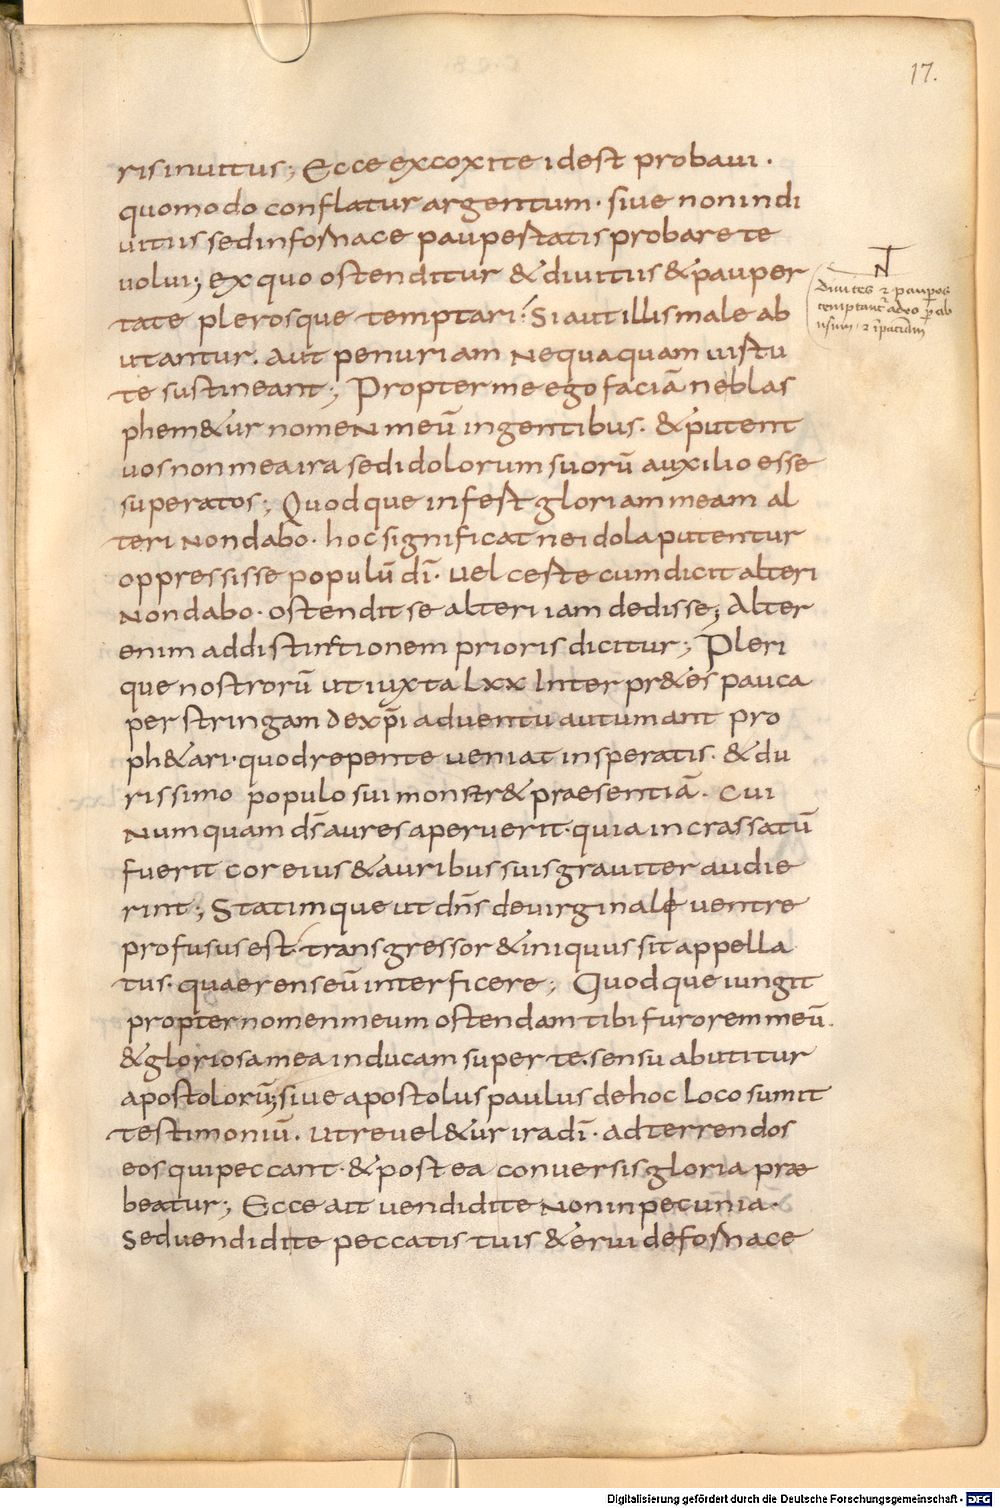 17.
ris inuitus; Ecce excoxi te id est probaui.
quomodo conflatur argentum. siue non in di
uitiis sed in fornace paupertatis probare te
uolui; ex quo ostenditur & diuitiis & pauper
tate plerosque temptari. Si aut illis male ab
utantur. aut penuriam nequaquam uirtu
te sustineant; Propter me ego faciā ne blas
phem&ur nomen meū in gentibus. & putent
uos non mea ira sed idolorum suorū auxilio esse
superatos; Quodque infest gloriam meam al
teri non dabo. hoc significat ne idola putentur
oppressisse populū dī. uel ceste cum dicit alteri
non dabo. ostendit se alteri iam dedisse; Alter
enim ad distinctionem prioris dicitur; Pleri
que nostrorū ut iuxta lxx Interpr&es pauca
perstringam de xp̄i aduentu autumant pro
ph&ari. quod repente ueniat insperatis. & du
rissimo populo sui monstr& praesentiā. cui
numquam dс̄ aures aperuerit. quia incrassatū
fuerit cor eius & auribus suis grauiter audie
rint; Statimque ut dn̄s de uirginali uentre
profusus est. transgressor & iniquus sit appella
tus. quaerens eū interficere; Quodque iungit
propter nomen meum ostendam tibi furorem meū.
& gloriosa mea inducam super te. sensu abutitur
apostolorū; siue apostolus paulus de hoc loco sumit
testimoniū. ut reuel&ur ira dī. ad terrendos
eos qui peccant. & postea conuersis gloria præ
beatur; Ecce ait uendidi te non in pecunia.
Sed uendidi te peccatis tuis & erui de fornace
N
diuites